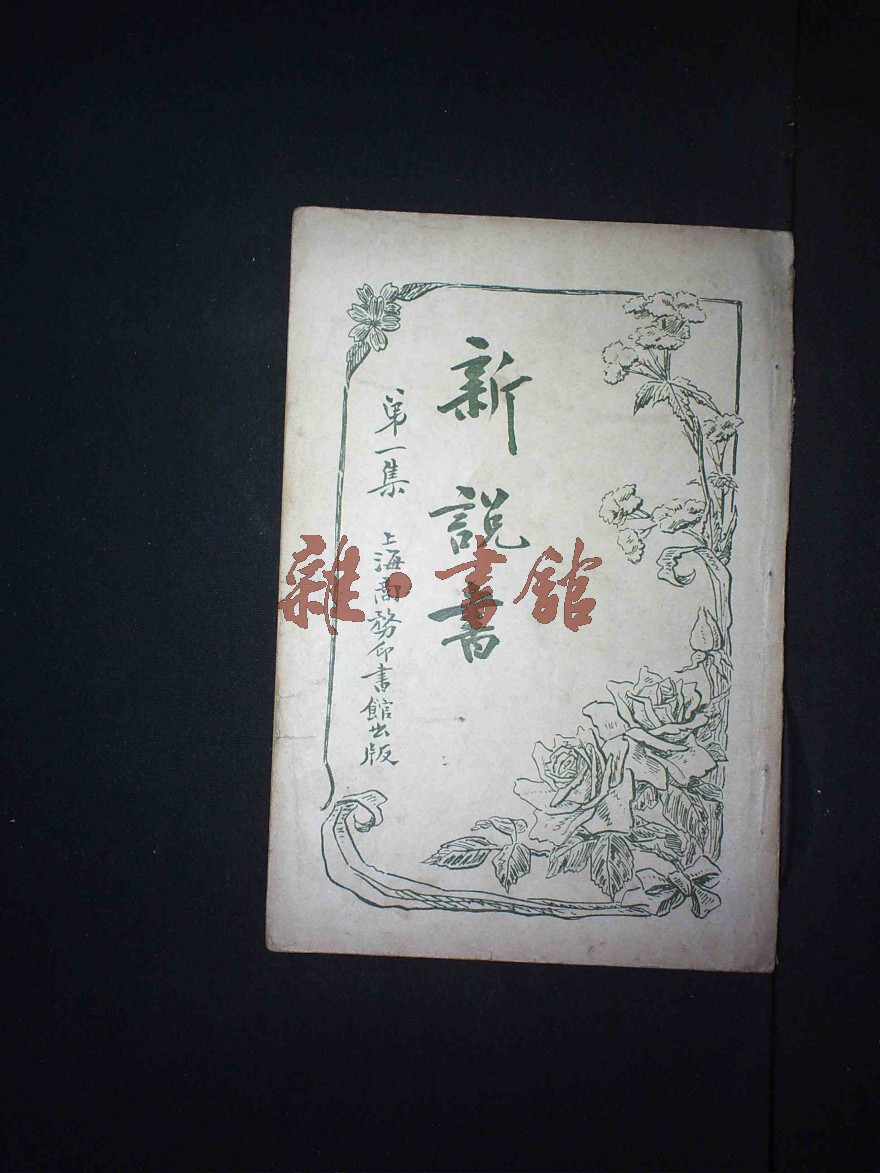 新說書
第一集
上海商務印書館出版
雜·書館